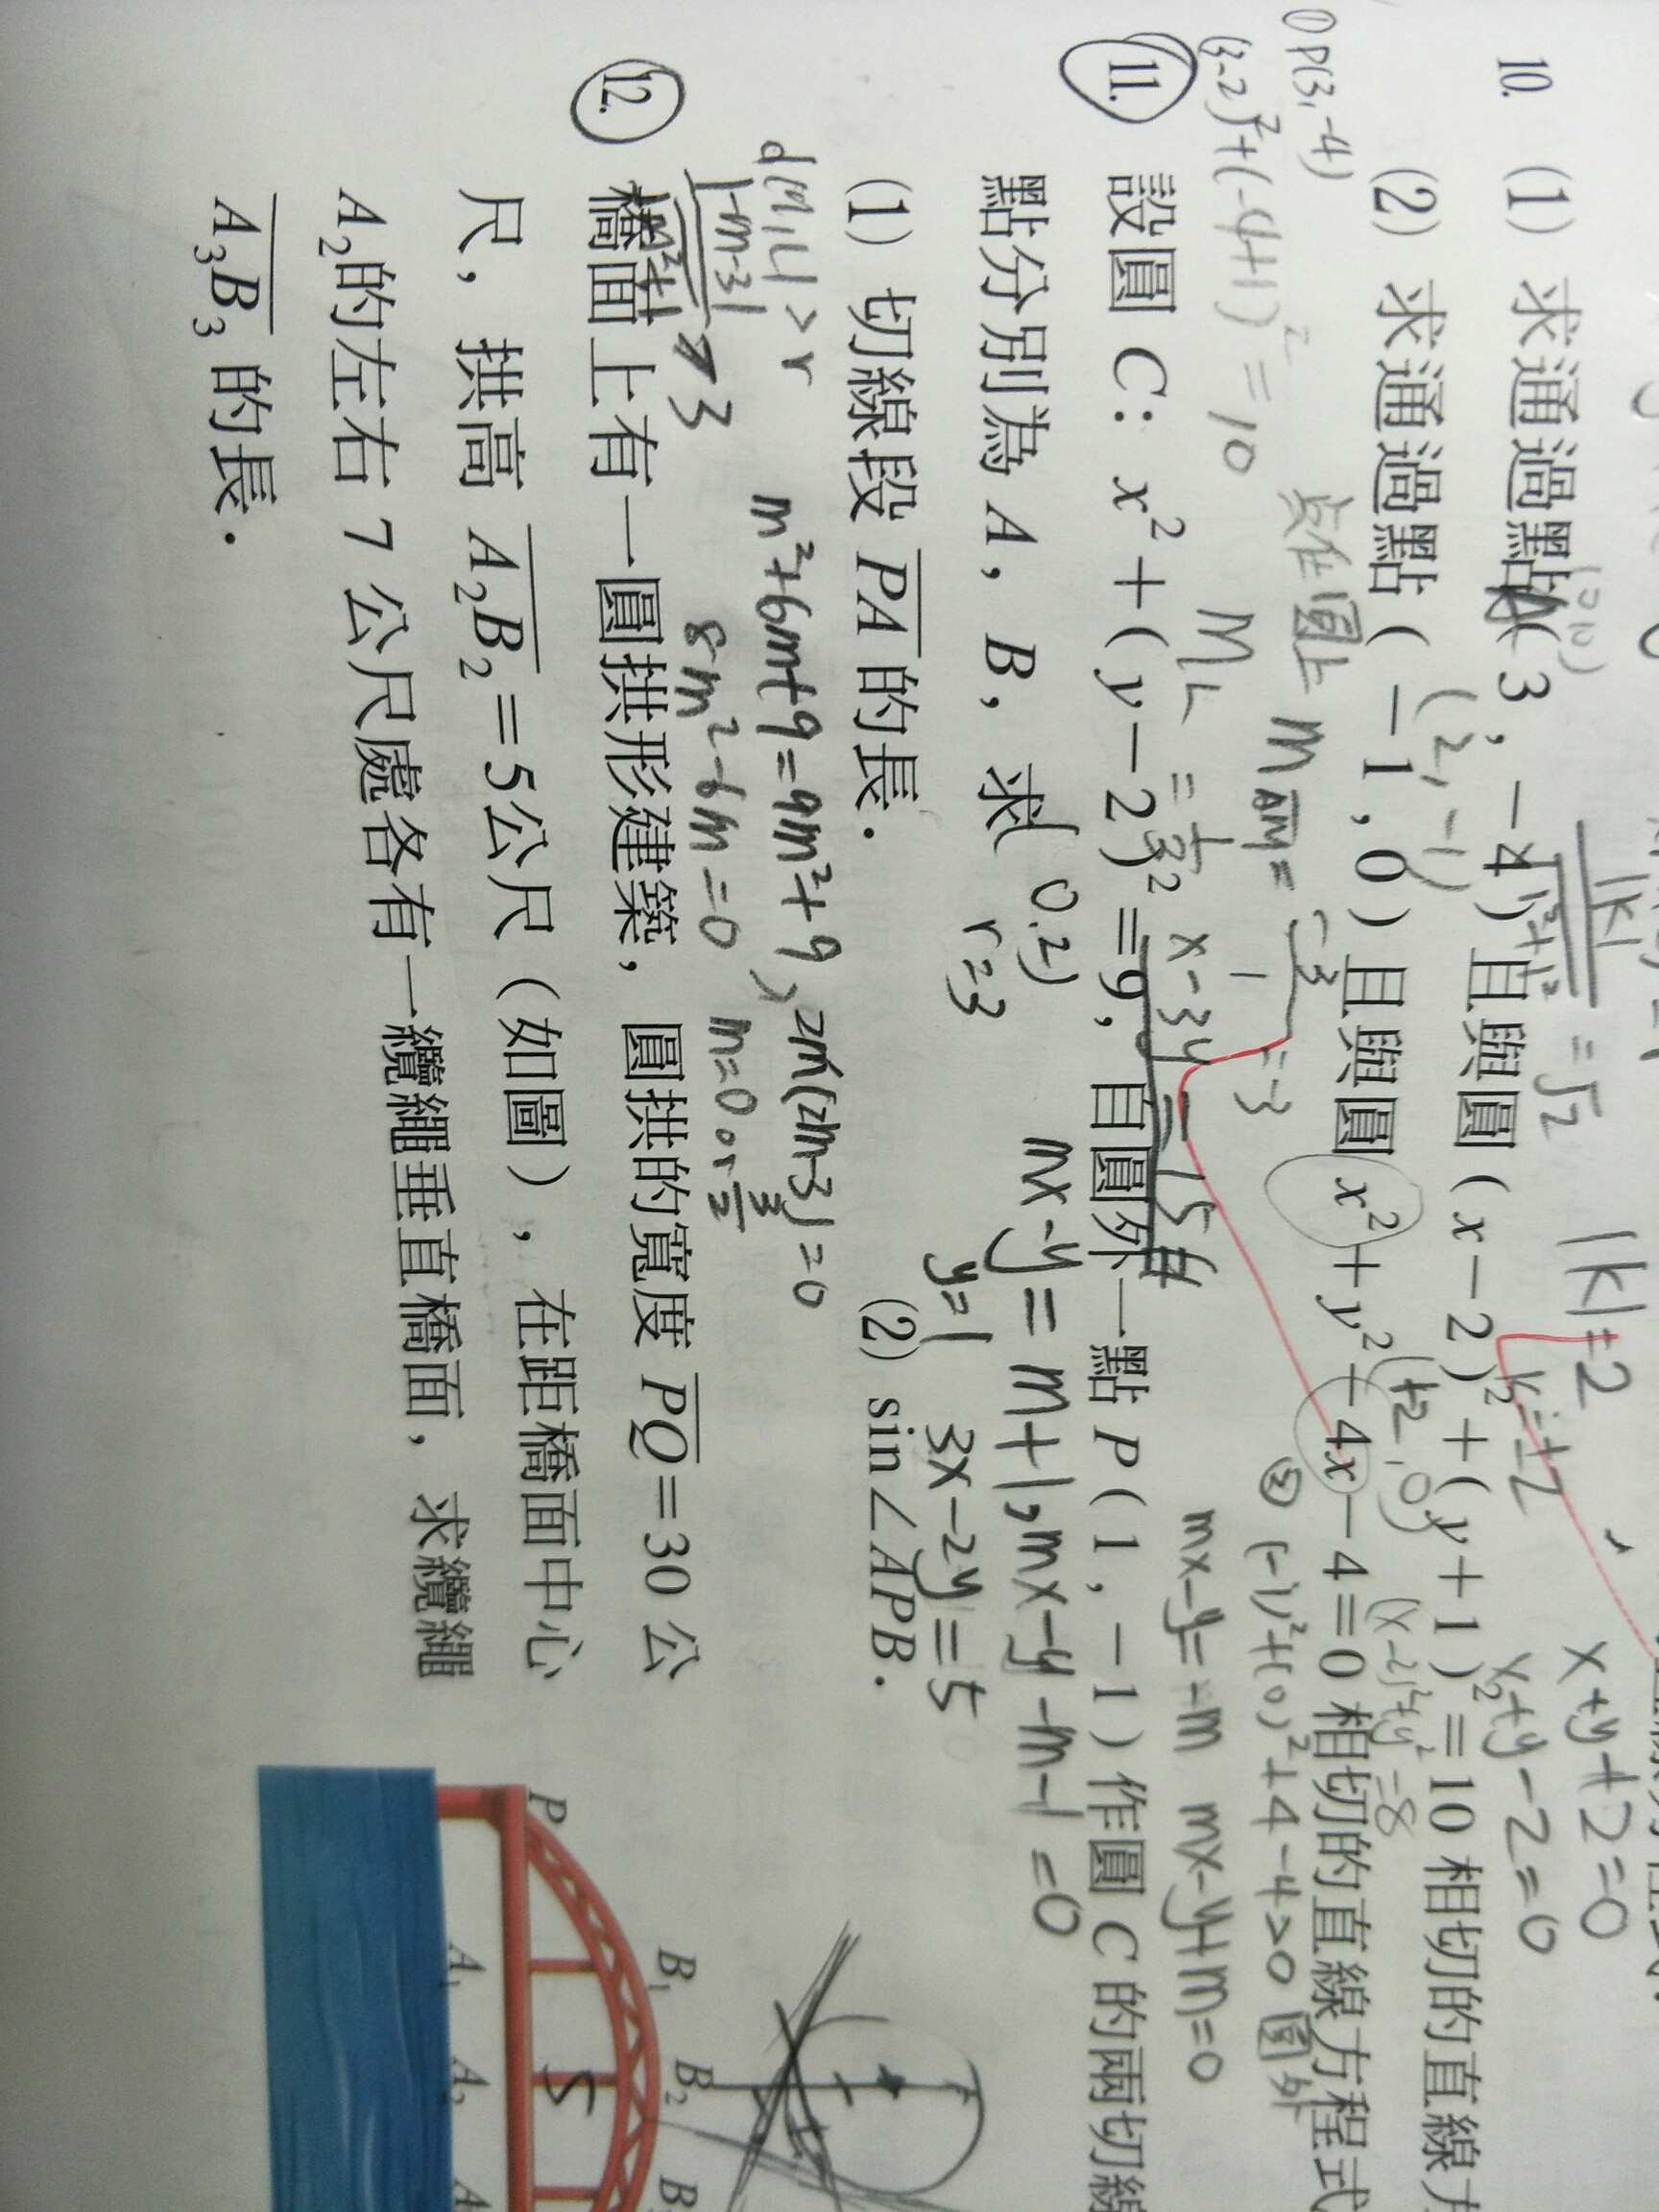 x+y+2=0
|k|=2
k=±2
x+y-2=0
|k|
=√2
10. (1) 求通過點A(3,-4)且與圓(x-2)²+(y+1)²=10相切的直線方
(2,-1)
① P(3,-4)
(3-2)²+(-4+1)²=10
點在圓上
(2) 求通過點(-1,0)且與圓x²+y²+4x-4=0相切的直線方程式
② (-1)²+(0)²+4-4>0 圓外
mx-y=-m mx-y+m=0
x-3y=15#
11. 設圓 C:x²+(y-2)²=9,自圓外一點 P(1,-1)作圓 C 的兩切線
點分別為 A,B,求
(0,2)
r=3
mx-y=m+1,mx-y-m-1=0
y=1 3x-2y=5
(1) 切線段 PA 的長. (2) sin∠APB.
d(M,L)>r
m²+6m+9=9m²+9,2m(2m-3)=0
8m²-6m=0 m=0 or 3/2
12. 橋面上有一圓拱形建築,圓拱的寬度 PQ=30 公
尺,拱高 A₂B₂=5公尺(如圖),在距橋面中心
A₂的左右 7 公尺處各有一纜繩垂直橋面,求纜繩
A₃B₃ 的長.
B₁ B₂
P
5
A₁ A₂